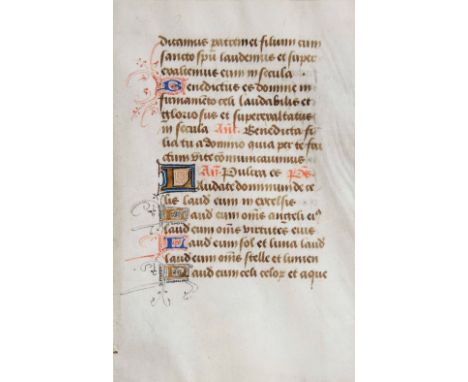 dicamus patrem et filium cum
sancto spu laudemus et super
exaltemus eum in secula
Benedictus es domine in
firmamento celi laudabilis et
gloriosus et superexaltatus
in secula Ant. Benedicta fi
lia tu a domino quia per te fru
ctum vite communicavimus
An Pulcra es Ps
Laudate dominum de ce
lis laud eum in excelsis
Laud eum oms angeli ei9
laud eum oms virtutes eius
Laud eum sol et luna laud
laud eum oms stelle et lumen
Laud eum celi celor et aque